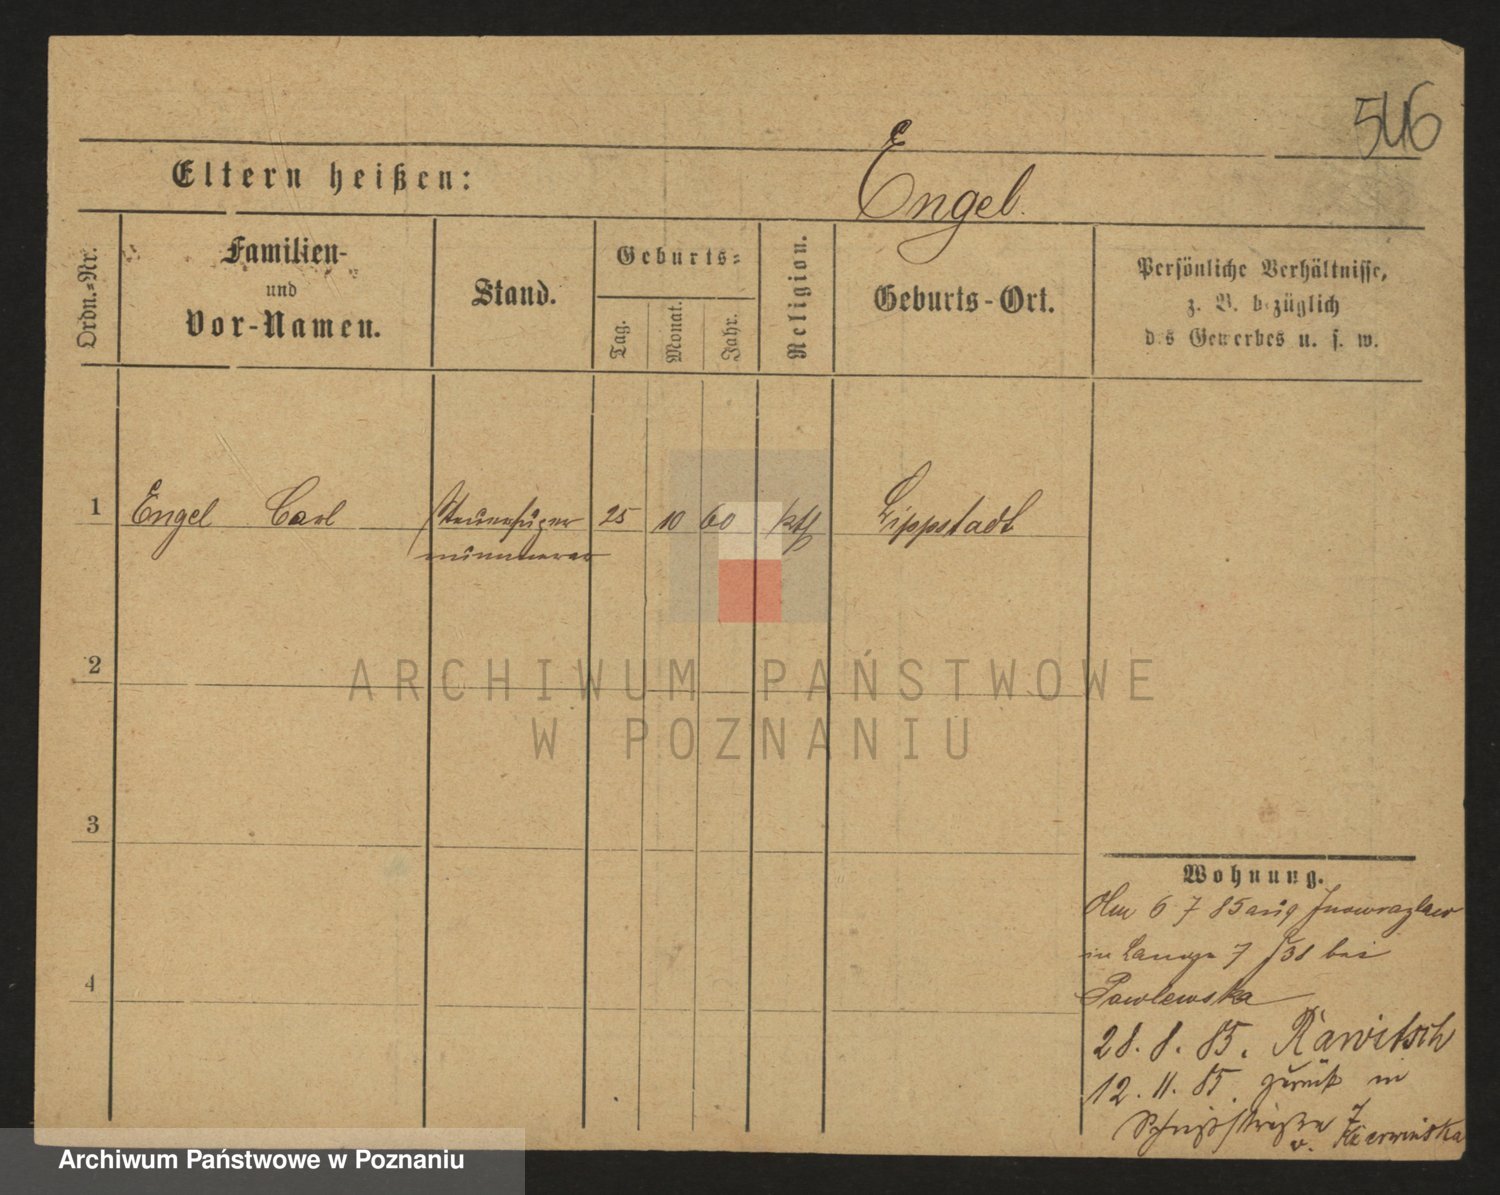 546
Eltern heißen:
Engel
Ordn.-Nr.
Familien-
und
Vor-Namen.
Stand.
Geburts-
Tag.
Monat.
Jahr.
Religion.
Geburts-Ort.
Persönliche Verhältnisse,
z. B. bezüglich
des Gewerbes u. s. w.
1
Engel Carl
25
10
60
kth
Lippstadt
2
ARCHIWUM PAŃSTWOWE
W POZNANIU
3
4
Wohnung.
6 7 85 aus Inowrazlaw
in 7 bei
Pawlewska
28. 8. 85. Rawitsch
12. 11. 85. zurück in
7
v.
Archiwum Państwowe w Poznaniu